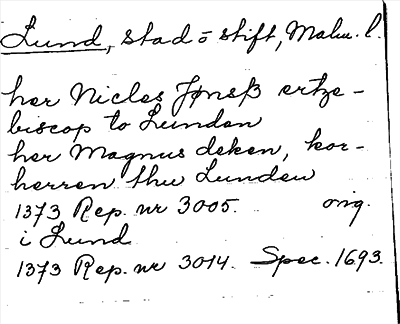 Lund, stad o stift, Malm. l.
her Nicles Jønsß ertze-
biscop to Lunden
her Magnus deken, kor-
herren thu Lunden
1373 Rep. nr 3005. orig.
i Lund
1373 Rep. nr 3014. Spec. 1693.